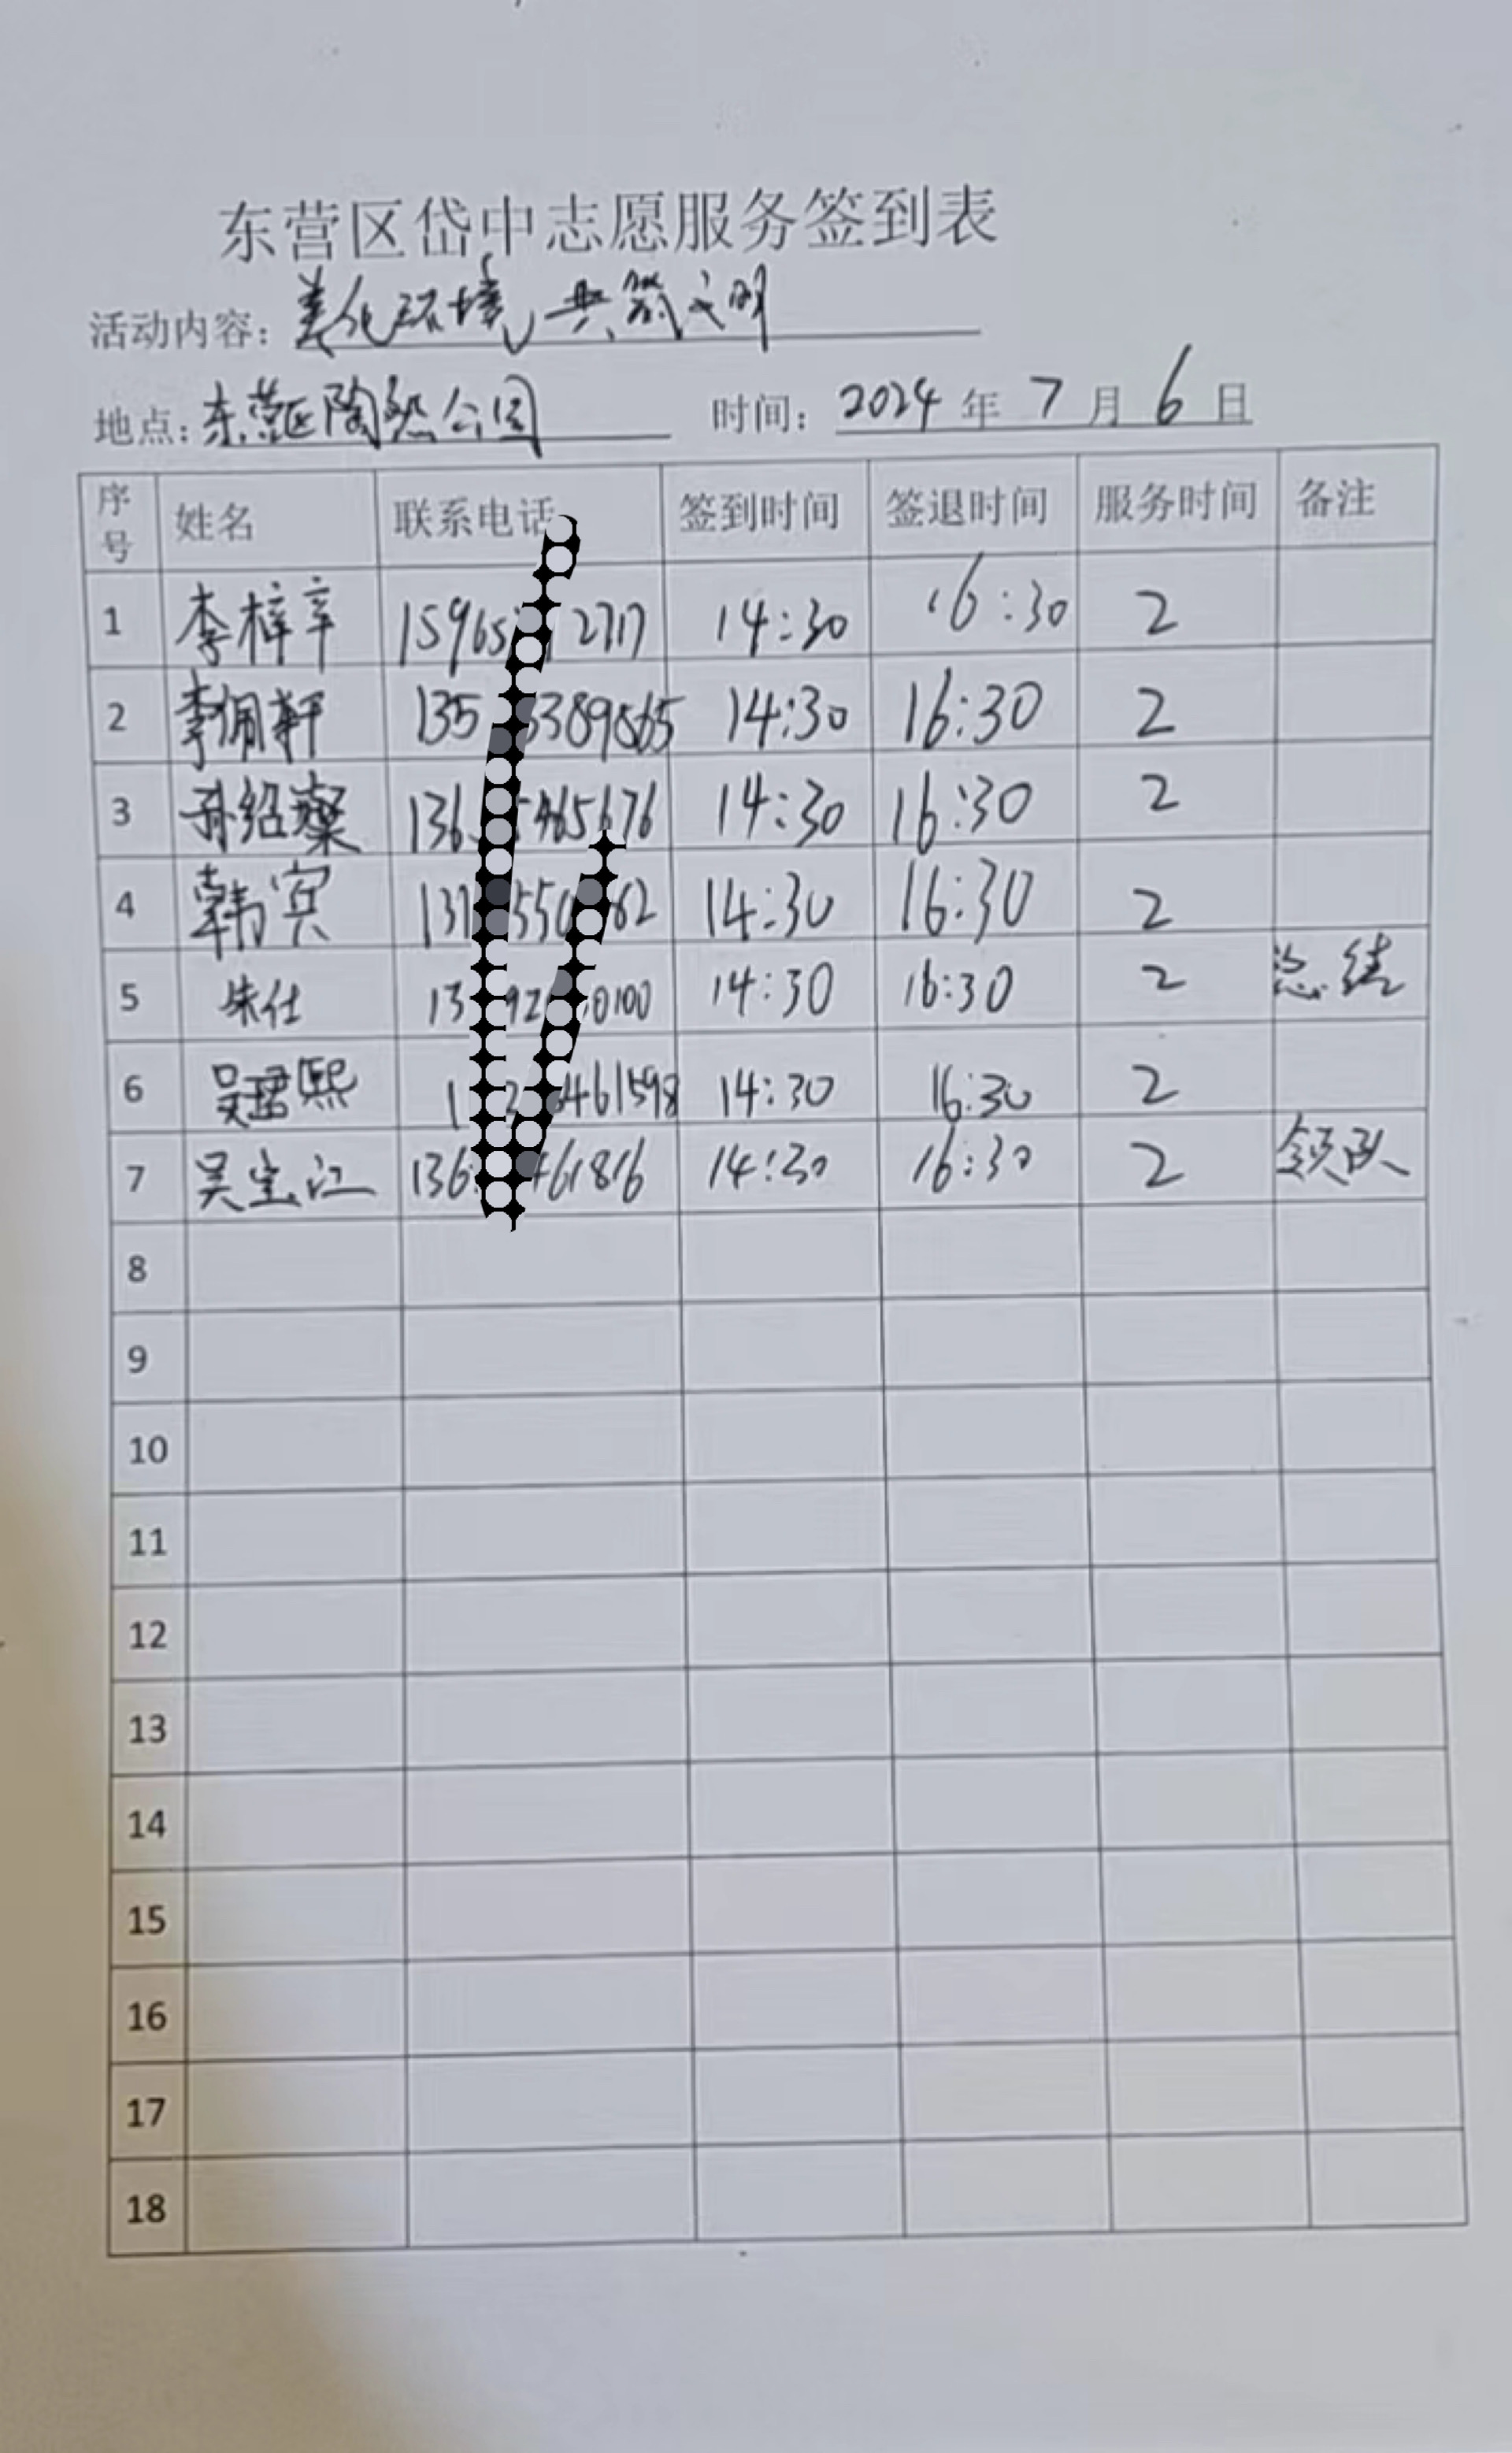 东营区岱中志愿服务签到表
活动内容：美化环境 共筑文明
地点：东营区陶然公园 时间：2024 年 7 月 6 日
序号 姓名 联系电话 签到时间 签退时间 服务时间 备注
1 李梓辛 15965 2717 14:30 16:30 2
2 李佩轩 135 3389865 14:30 16:30 2
3 孙绍燦 136 5465676 14:30 16:30 2
4 韩宾 137 550 62 14:30 16:30 2
5 朱仕 13 92 0100 14:30 16:30 2 总结
6 吴珺熙 1 2 461598 14:30 16:30 2
7 吴宝江 136 461816 14:30 16:30 2 领队
8
9
10
11
12
13
14
15
16
17
18